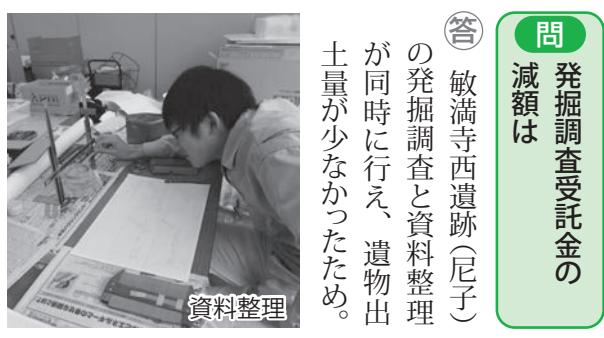 問
発掘調査受託金の
減額は
答 敏満寺西遺跡(尼子)
の発掘調査と資料整理
が同時に行え、遺物出
土量が少なかったため。
資料整理